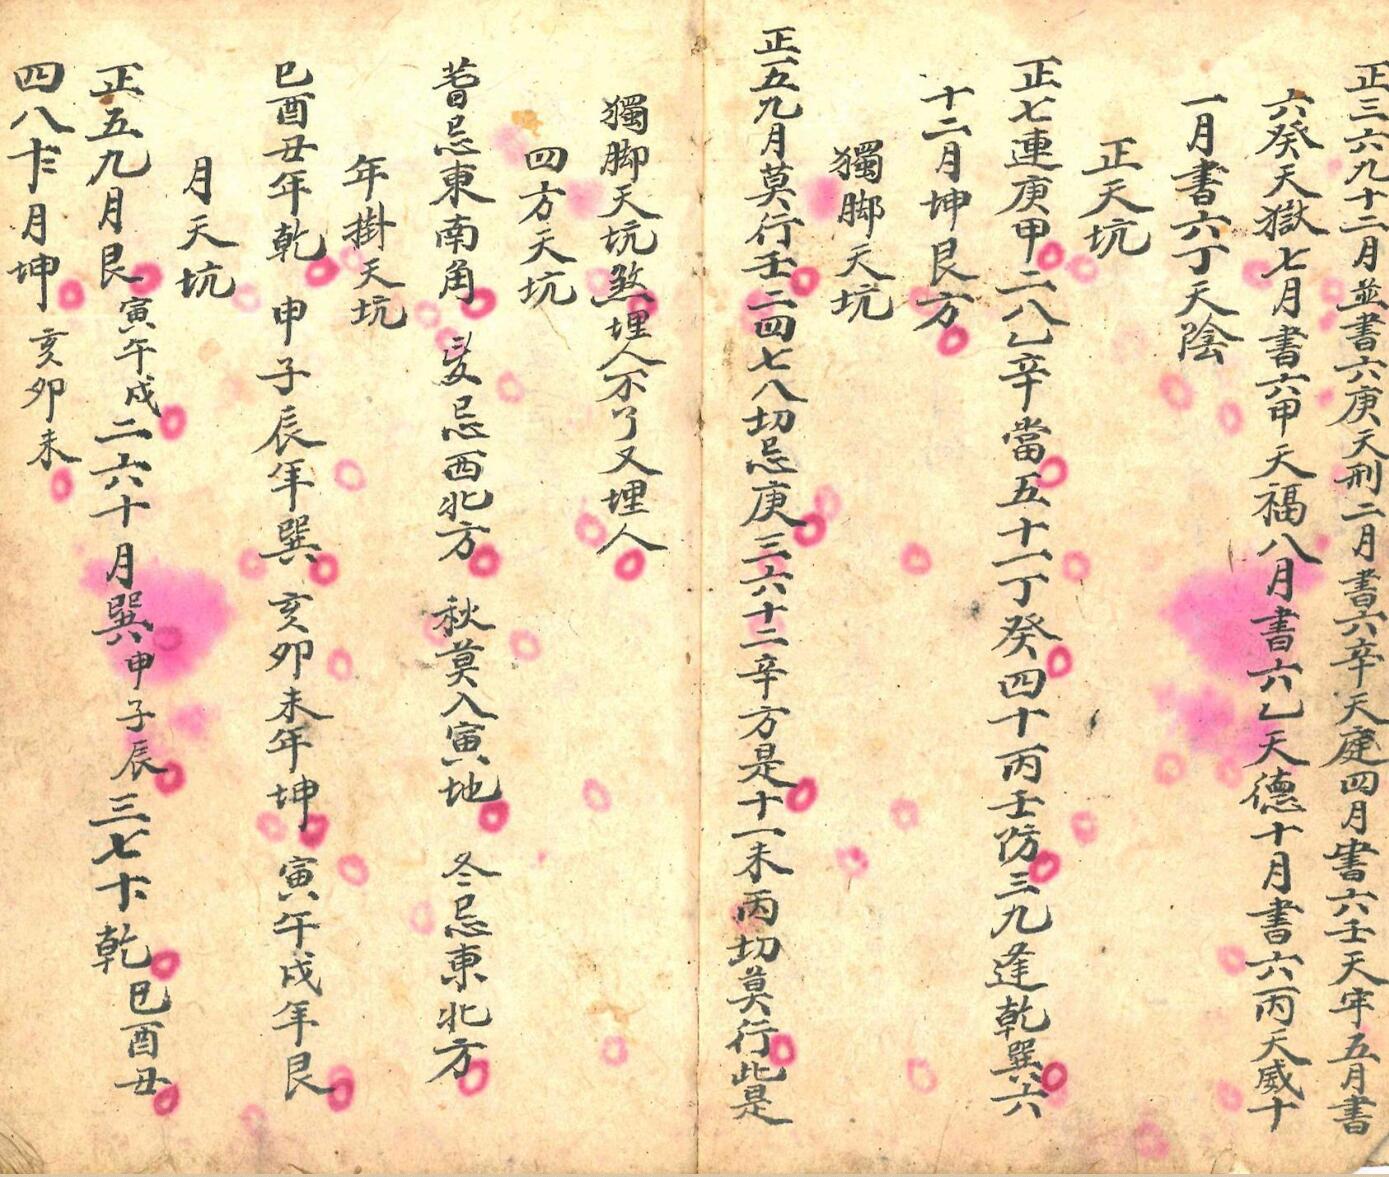 正三六九十二月並書六庚天刑二月書六辛天庭四月書六壬天牢五月書
六癸天獄七月書六甲天福八月書六乙天德十月書六丙天威十
一月書六丁天陰
正天坑
正七連庚甲二八乙辛當五十一丁癸四十丙壬防三九逢乾巽六
十二月坤艮方
獨脚天坑
正五九月莫行壬二四七八切忌庚三六十二辛方是十一未丙切莫行此是
獨脚天坑煞埋人不了又埋人
四方天坑
忌東南角 忌西北方 秋莫入寅地 冬忌東北方
年掛天坑
巳酉丑年乾 申子辰年巽 亥卯未年坤 寅午戌年艮
月天坑
正五九月艮寅午戌二六十月巽申子辰三七乾巳酉丑
四八月坤亥卯未